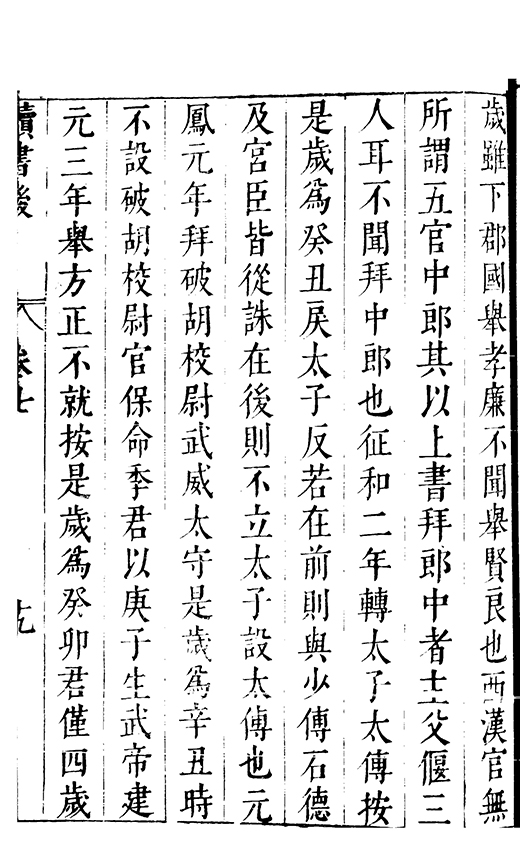 歲雖下郡國舉孝廉不聞舉賢良也西漢官無
所謂五官中郎其以上書拜郎中者主父偃三
人耳不聞拜中郎也征和二年轉太子太傅按
是歲爲癸丑戾太子反若在前則與少傅石德
及宮臣皆從誅在後則不立太子設太傅也元
鳳元年拜破胡校尉武威太守是歲爲辛丑時
不設破胡校尉官保命季君以庚子生武帝建
元三年舉方正不就按是歲爲癸卯君僅四歲
讀書後 卷七